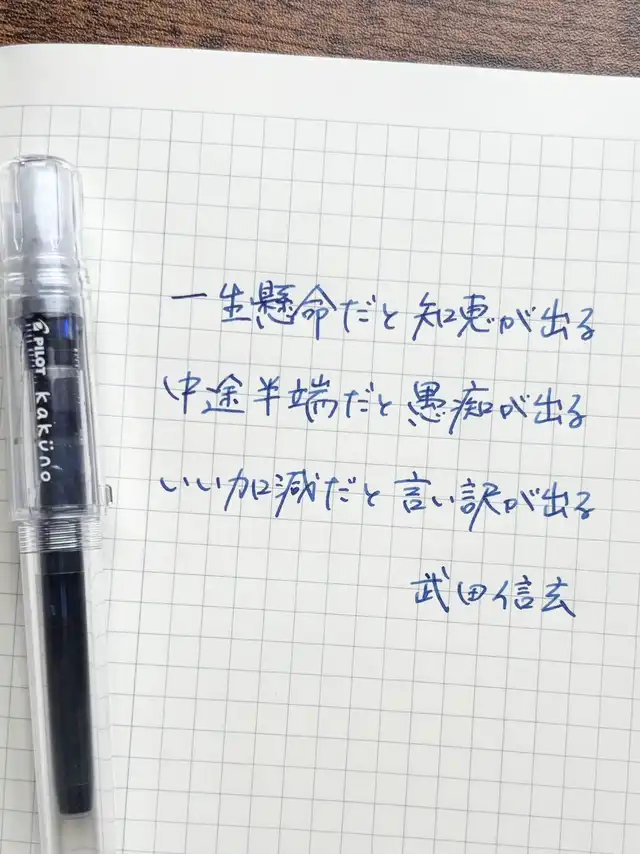 PILOT kaküno
一生懸命だと知恵が出る
中途半端だと愚痴が出る
いい加減だと言い訳が出る
武田信玄